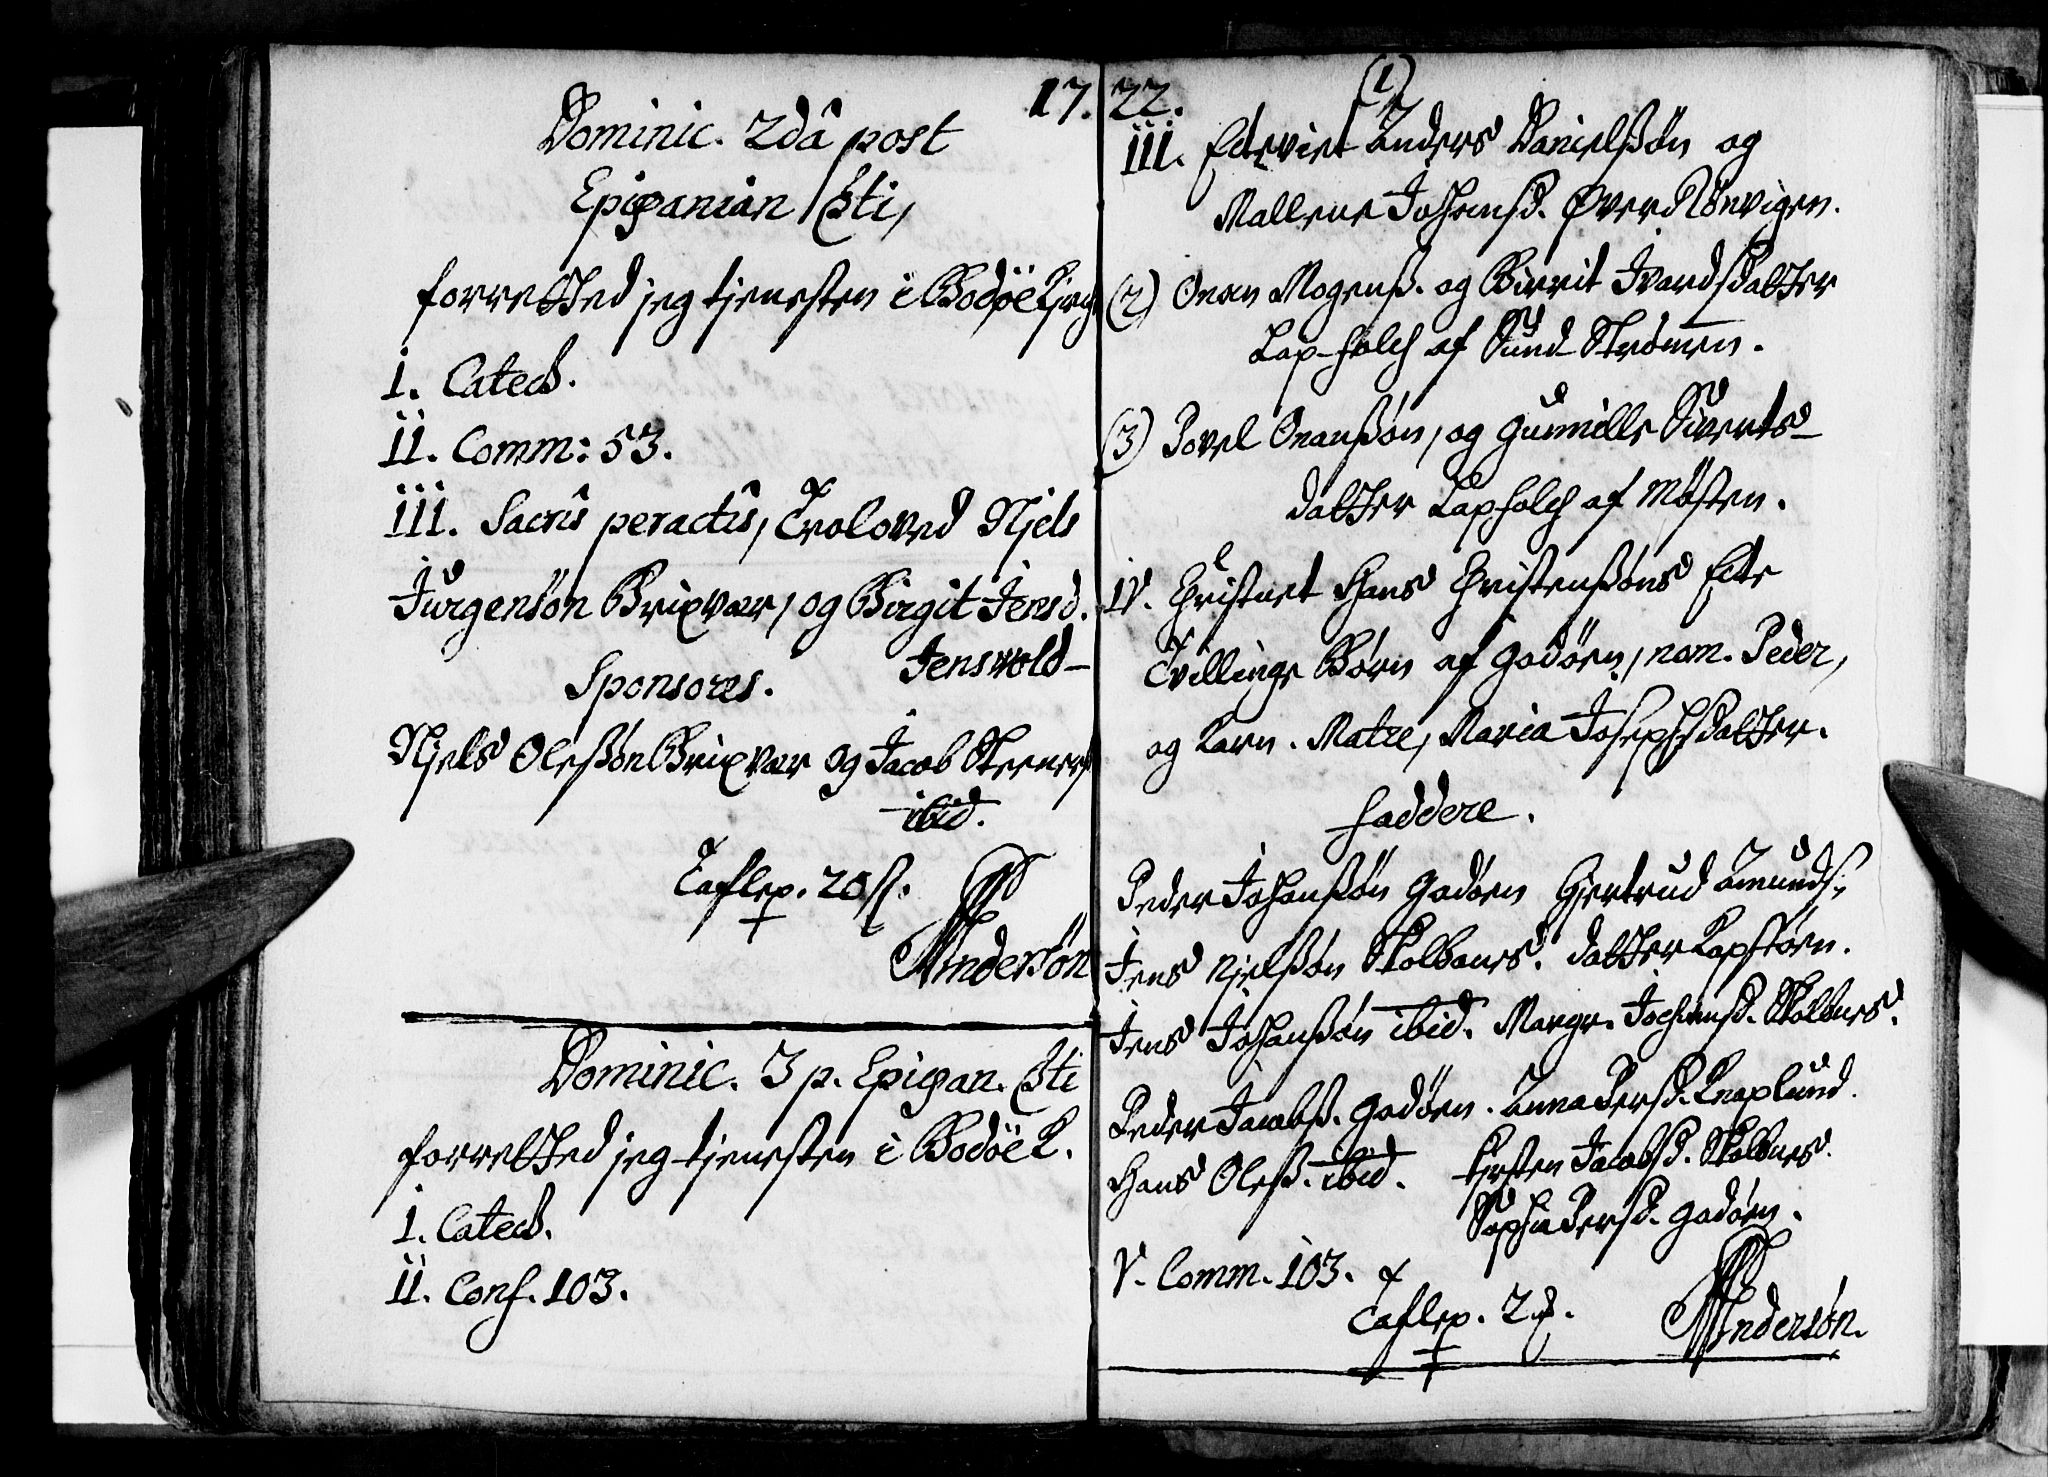 17.22.
Dominic. 2dâ post
Epiphanian Xsti,
forretted jeg tjenesten i Bodøe Kirch
I. Catech.
II. Comm: 53.
III. Sacris peractis, Troloved Njels
Jurgensøn Brixvær, og Birgit Jensd.
Jensvold
Sponsores.
Njels Oleßøn Brixvær og Jacob Steeners
ibid.
Taflep. 20 ß.
Andersøn
Dominic. 3 p. Epiphan. Xsti
forretted jeg tjenesten i Bodøe K.
I. Catech.
II. Conf. 103.
(1)
III. Ecteviet Anders Danielßøn og
Mallene Johansd. Øverd Rønvigen.
(2) Onan Mogenß. og Birrit Ivardsdatter
Lap-folch af Sund Strømen.
(3) Povel Onanßøn, og Gunnille Siverts-
datter Lapfolch af Misten.
IV. Christnet Hans Christenßøns Ecte
Tvillinge Børn af Godøen, nom. Peder,
og Karn. Matre, Maria Josephsdatter.
Faddere.
Peder Johanßøn Godøen Gjertrud Amunds-
Jens Njelßøn Skolbanes. datter Kapstøen.
Jens Johanßøn ibid. Margr. Jochumsd. Skolbnes.
Peder Jacobß. Godøen. Anna Persd. Knaplund.
Hans Oleß. ibid. Kirsten Jacobsd. Skolbnes.
Sophia Persd. Godøen.
V. Comm. 103.
Taflep. 2
Andersøn.